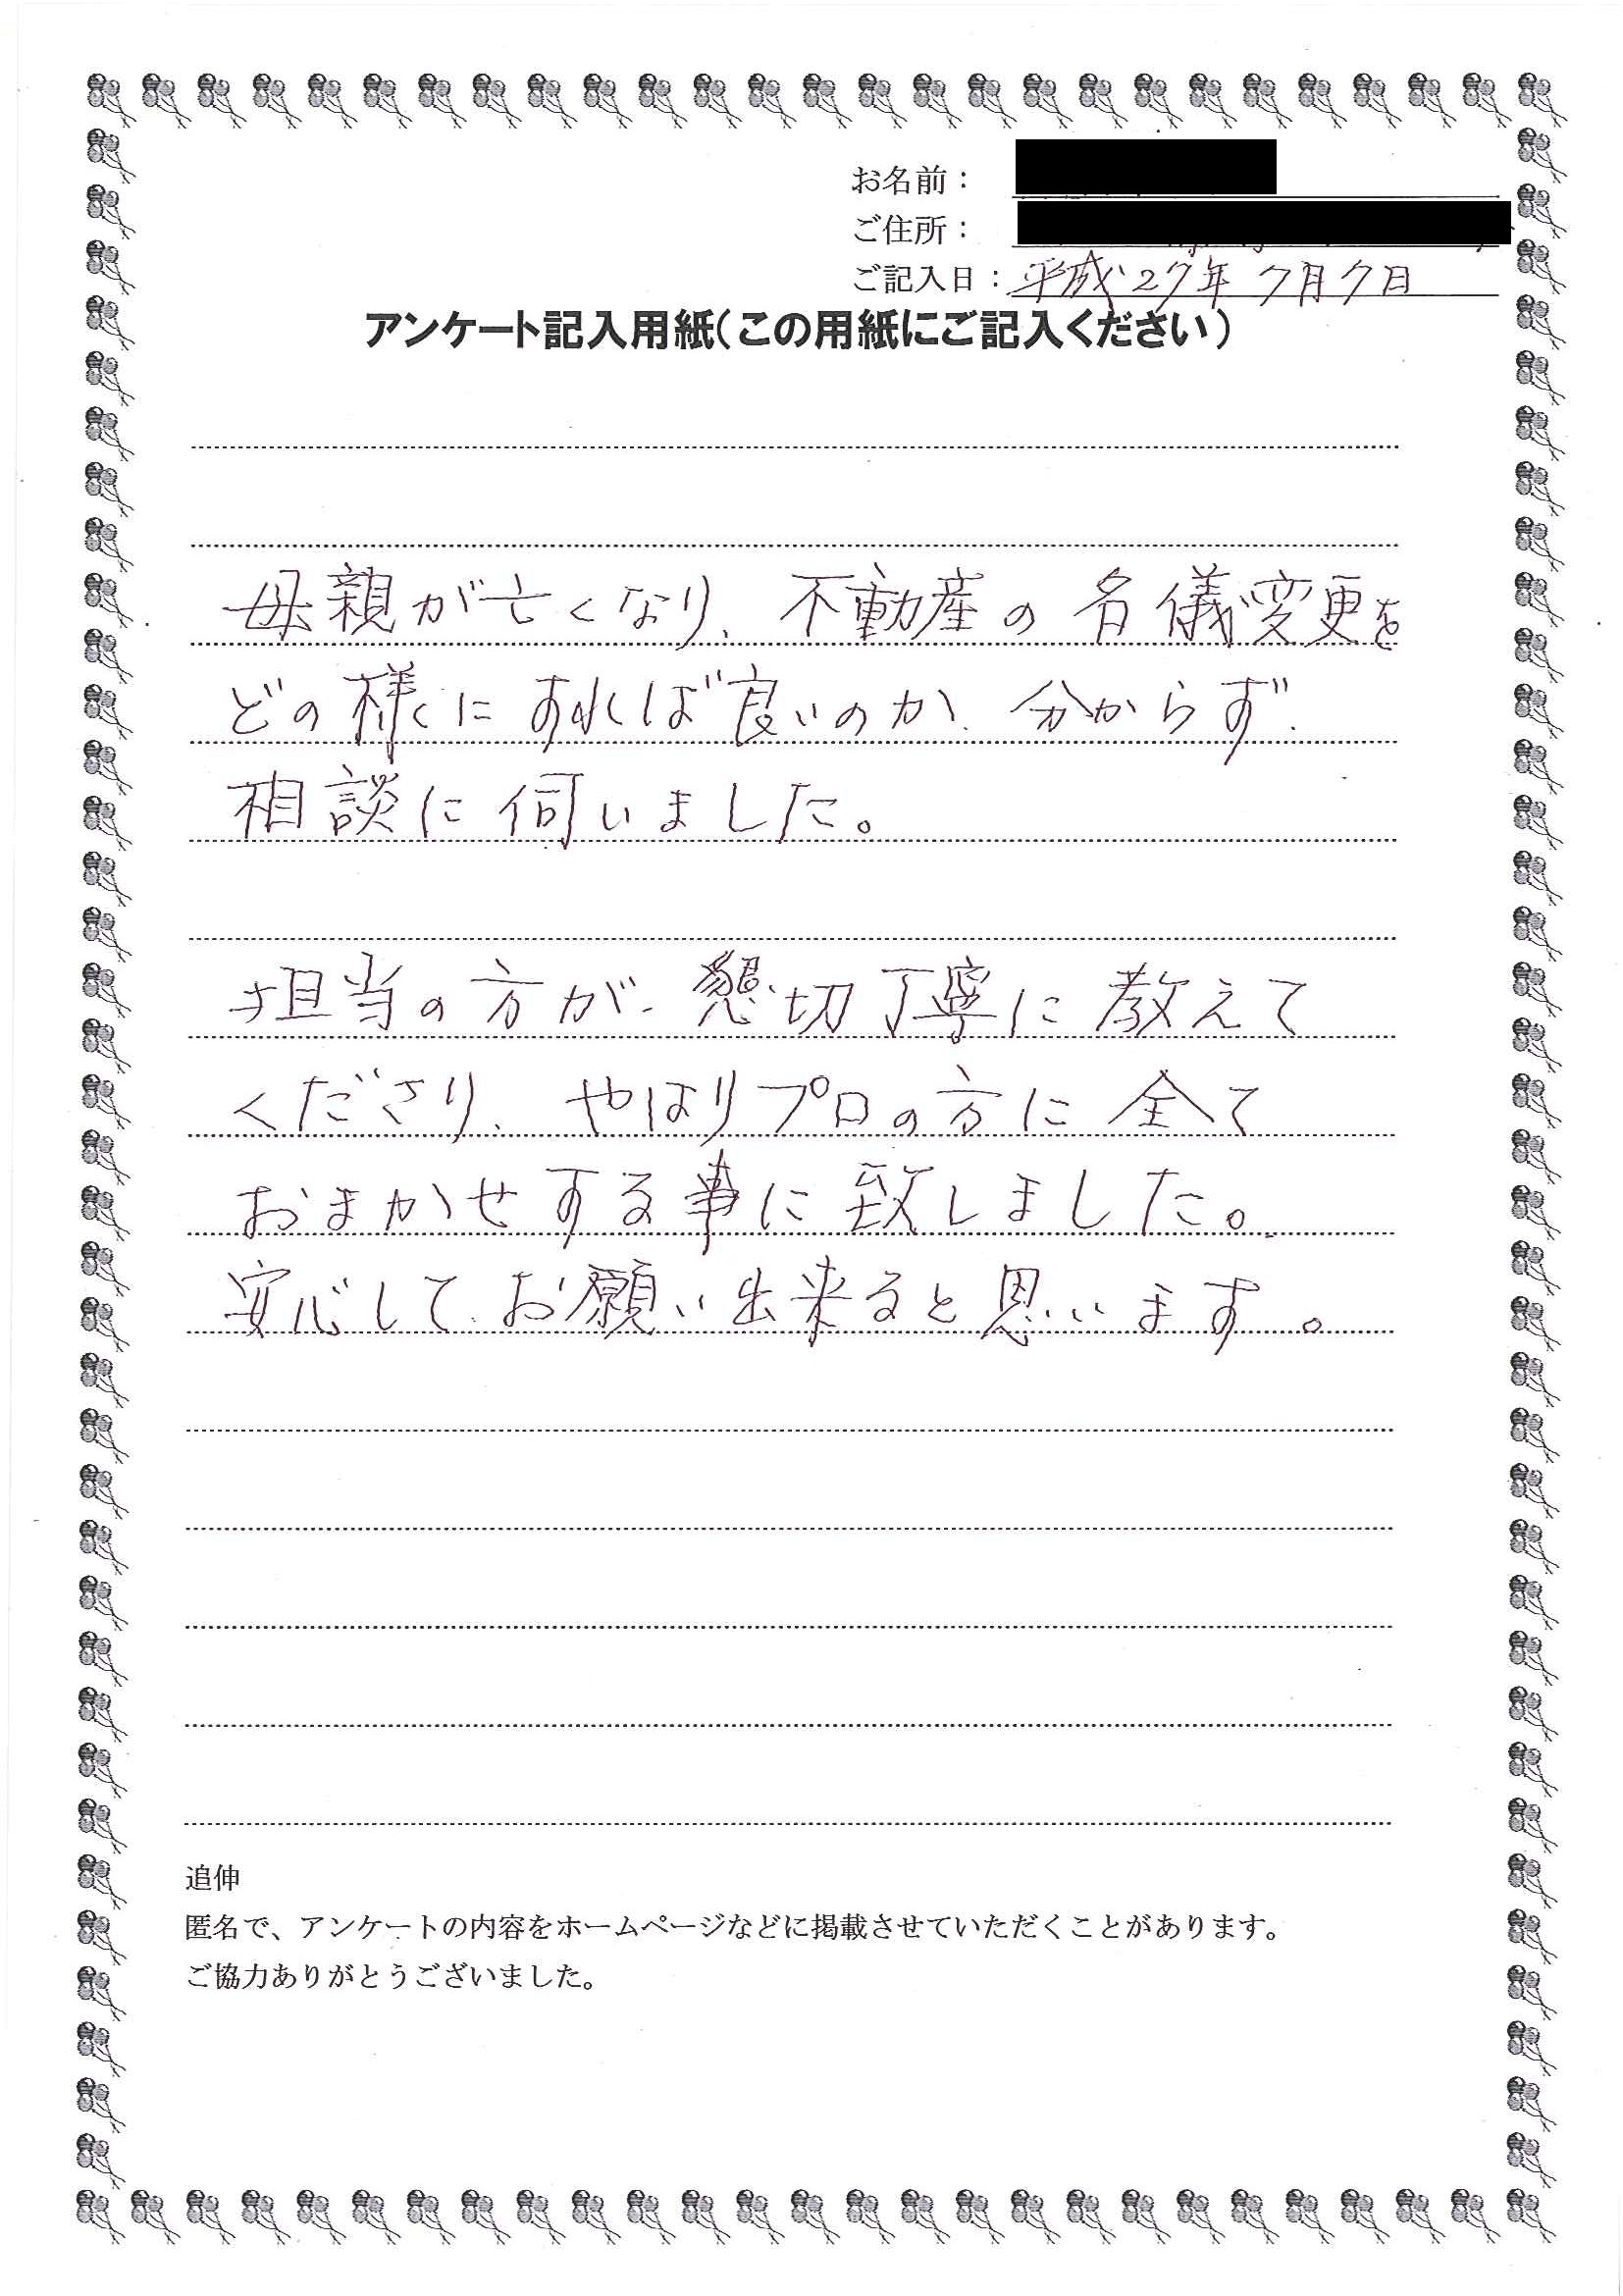 お名前：
ご住所：
ご記入日：平成27年7月7日
アンケート記入用紙（この用紙にご記入ください）
母親が亡くなり、不動産の名儀変更を
どの様にすれば良いのか、分からず、
相談に伺いました。
担当の方が、懇切丁寧に教えて
くださり、やはりプロの方に全て
おまかせする事に致しました。
安心して、お願い出来ると思います。
追伸
匿名で、アンケートの内容をホームページなどに掲載させていただくことがあります。
ご協力ありがとうございました。